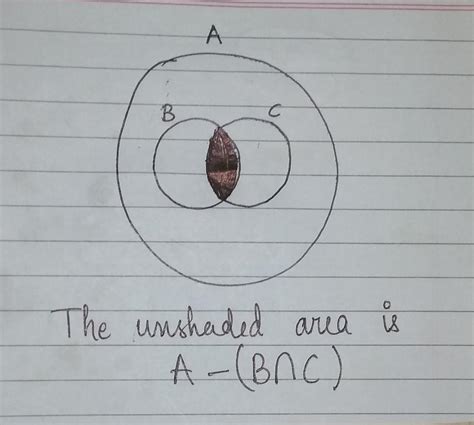 A
B C
The unshaded area is
A - (B∩C)